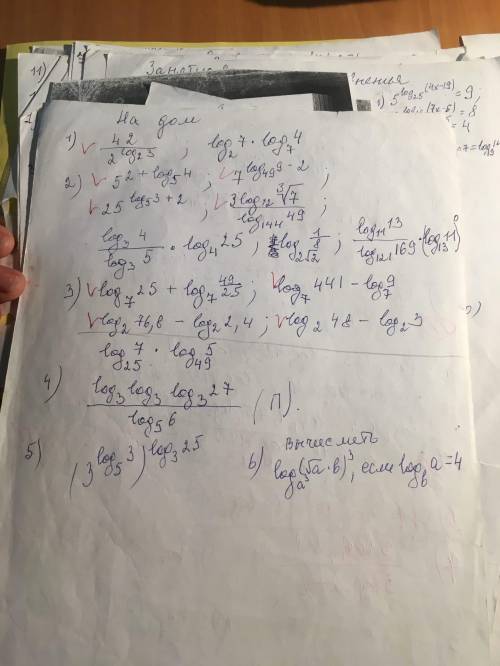 11)
На дом
1) 42 / 2^{log_2 3} ; log_2 7 · log_7 4
2) 5^{2 + log_5 4} ; 7^{log_{49} 9 - 2} ;
25^{log_5 3 + 2} ; 3 log_{12} ∛7 / log_{144} 49 ;
log_3 4 / log_3 5 · log_4 25 ; log_{2√2} 1/8 ; log_{11} 13 / log_{121} 169 · (log_{13} 11)^0
3) log_7 25 + log_7 49/25 ; log_7 441 - log_7 9
log_2 76,8 - log_2 2,4 ; log_2 48 - log_2 3
log_{25} 7 · log_{49} 5
4) log_3 log_3 log_3 27 / log_5 6 (П).
5) (3^{log_5 3})^{log_3 25}
6) вычислить
log_a (√a · b)^3, если log_b a = 4
1) 5^{log_{25} (4x-19)} = 9 ;
= 8
= 4